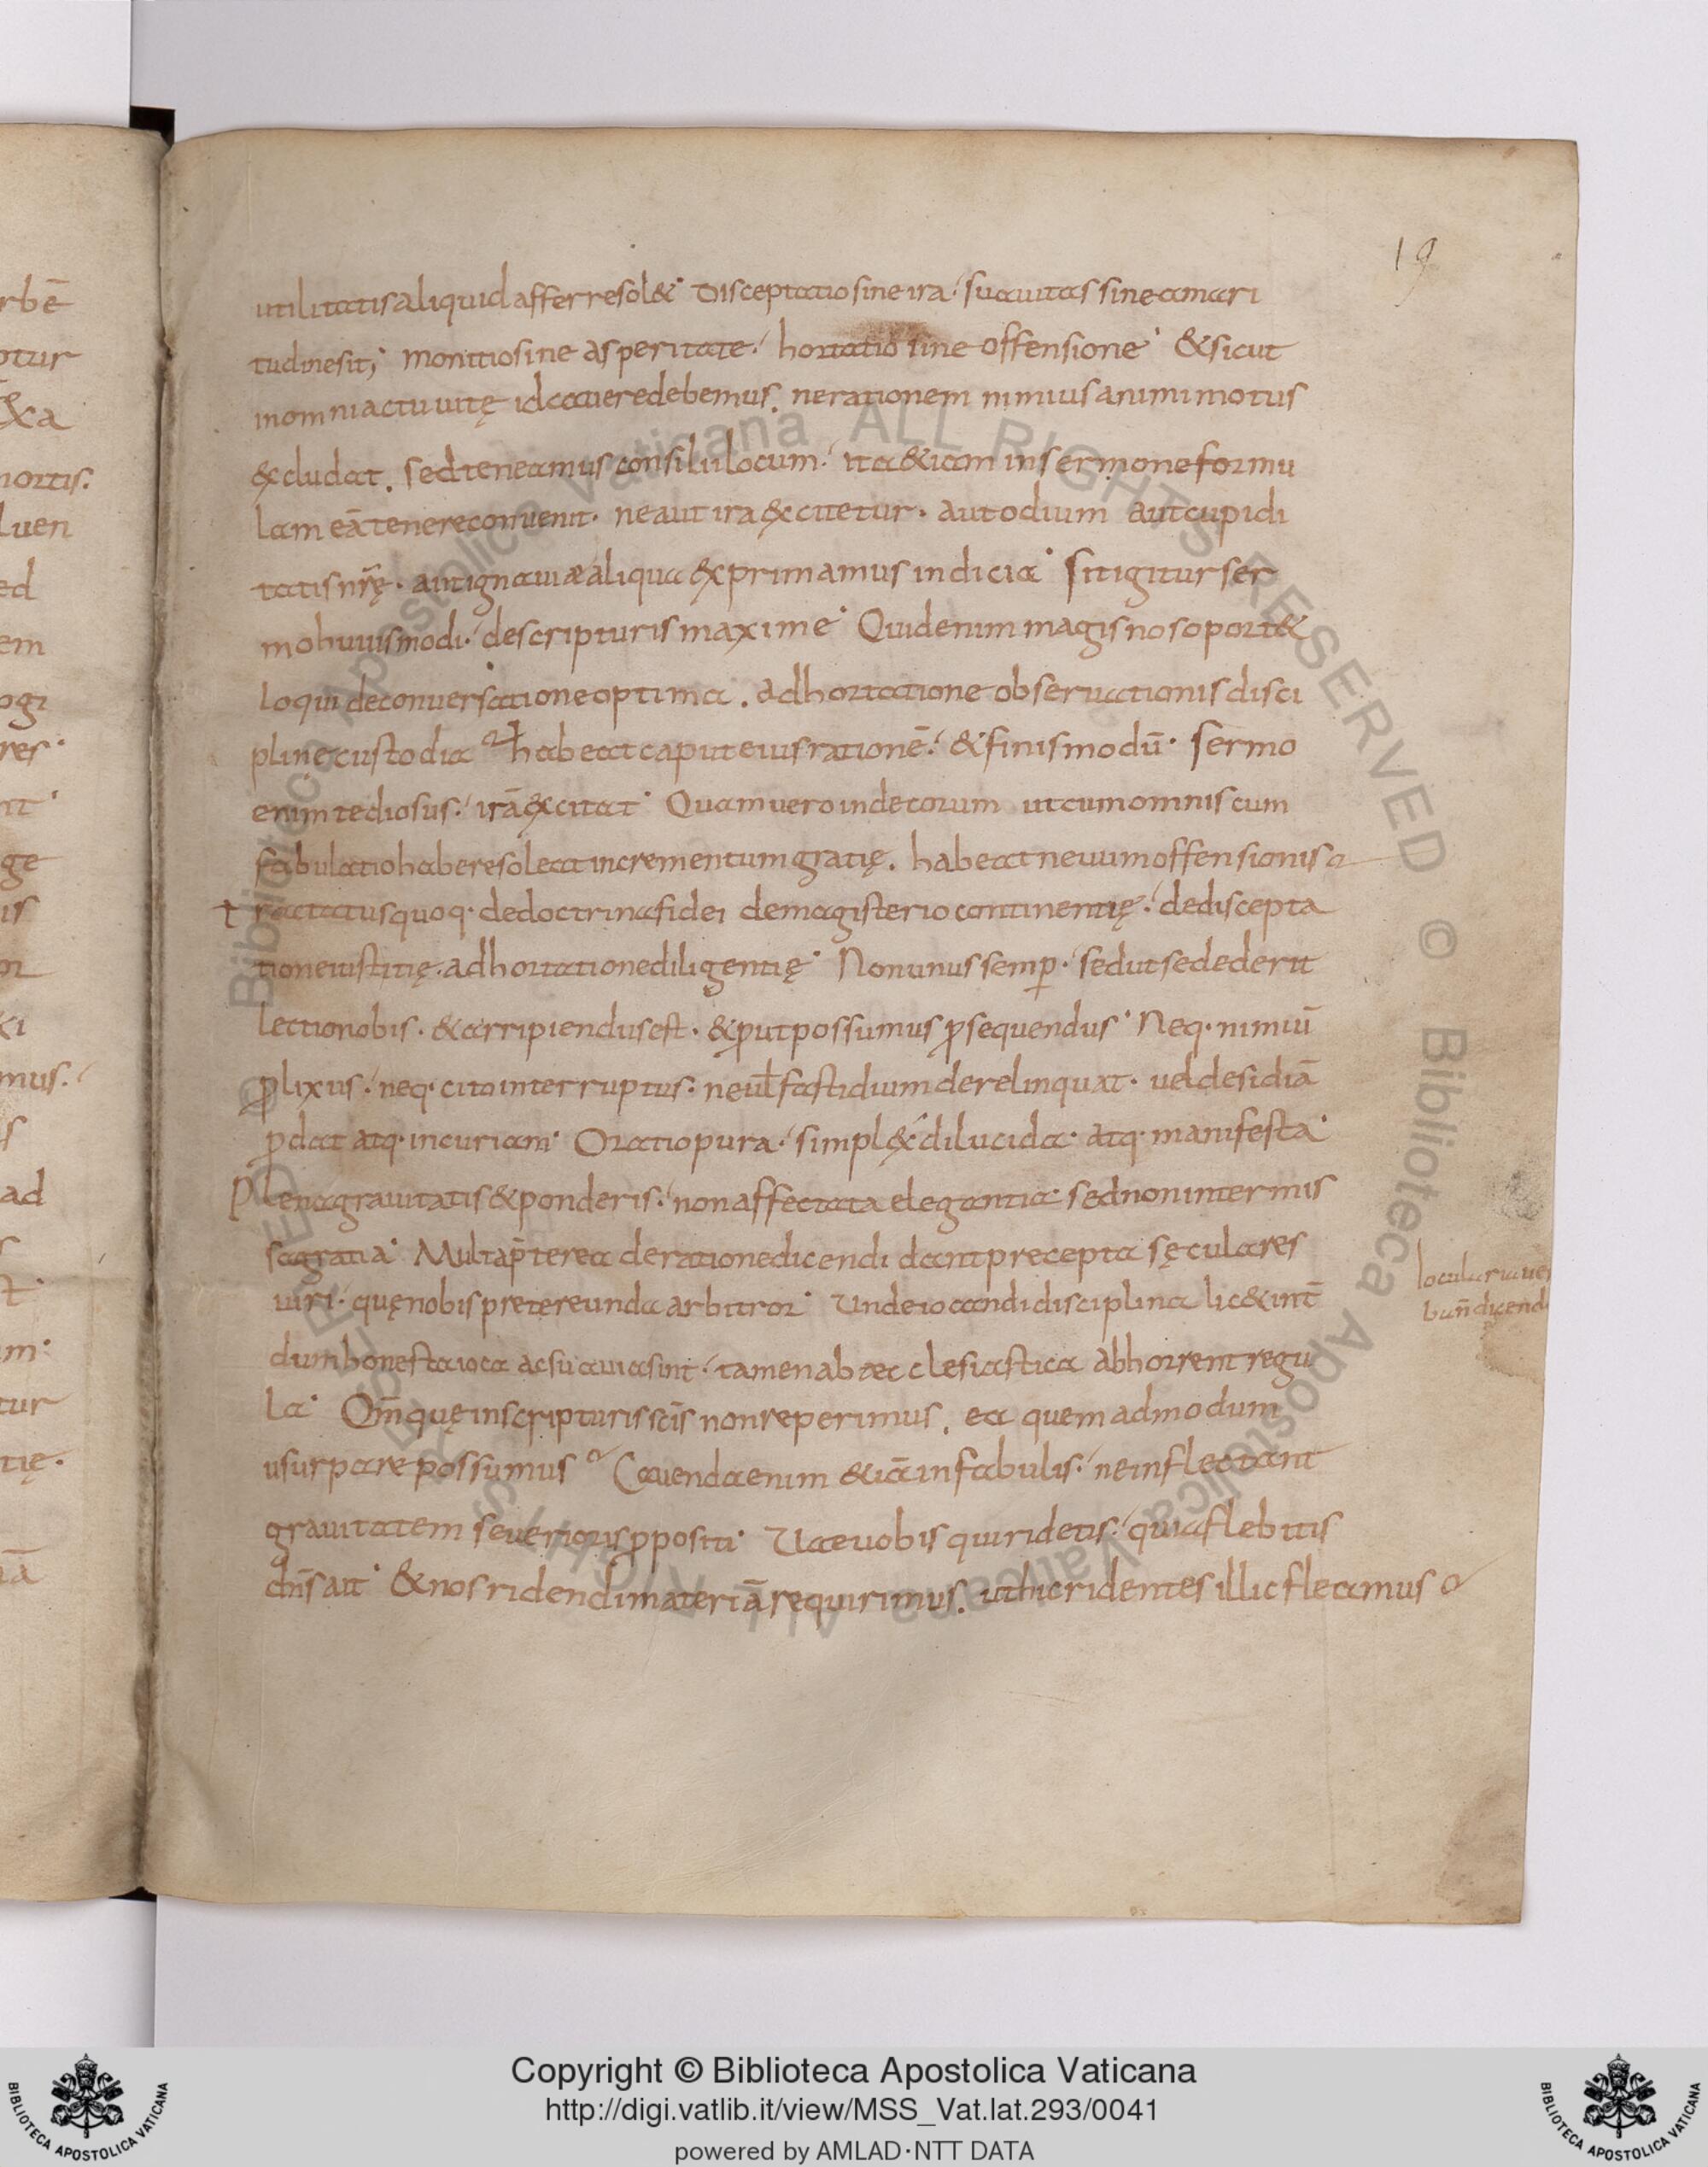 19
utilitatis aliquid afferre sol&. Disceptatio sine ira. suauitas sine amari
tudine sit; monitio sine asperitate. hortatio sine offensione. & sicut
in omni actu uitę id cauere debemus. ne rationem nimius animi motus
&cludat. sed teneamus consilii locum. ita &iam in sermone formu
lam eā tenere conuenit. ne aut ira &citetur. aut odium aut cupidi
tatis nr̄ę. aut ignauiæ aliqua &primamus indicia. Sit igitur ser
mo huiuismodi. de scripturis maxime. Quid enim magis nos oport&
loqui de conuersatione optima. adhortatione obseruationis disci
pline custodia habeat caput eius rationē. & finis modū. sermo
enim tediosus. irā &citat. Quam uero indecorum ut cum omnis cum
fabulatio habere soleat incrementum gratię. habeat neuum offensionis
tractatus quoq. de doctrina fidei de magisterio continentię. de discepta
tione iustitię. adhortatione diligentię. Non unus semꝑ. sed ut se dederit
lectio nobis. & arripiendus est. & ꝓut possumus ꝓsequendus. Neq. nimiū
ꝓlixus. neq. cito interruptus. neuł fastidium derelinquat. uel desidiā
ꝓdat atq. incuriam. Oratio pura. simpl&. dilucida. atq. manifesta.
Plena grauitatis & ponderis. non affectata elegantia. sed non intermis
sa gratia. Multa p̄terea de ratione dicendi dant precepta sęculares
uiri. quę nobis pretereunda arbitror. Unde iocandi disciplina lic& int̄
dum honesta ioca ac suauia sint. tamen ab æcclesiastica abhorrent regu
la. Om̄ quę in scripturis sc̄is non reperimus. ea quem admodum
usurpare possumus Cauenda enim &iā in fabulis. ne inflectant
grauitatem seuerioris ꝓpositi. Uae uobis qui ridetis. quia flebitis
dn̄s ait. & nos ridendi materiā requirimus. ut hic ridentes illic fleamus
Biblioteca Apostolica Vaticana ALL RIGHTS RESERVED ©
Copyright © Biblioteca Apostolica Vaticana
http://digi.vatlib.it/view/MSS_Vat.lat.293/0041
powered by AMLAD·NTT DATA
BIBLIOTECA APOSTOLICA VATICANA
BIBLIOTECA APOSTOLICA VATICANA